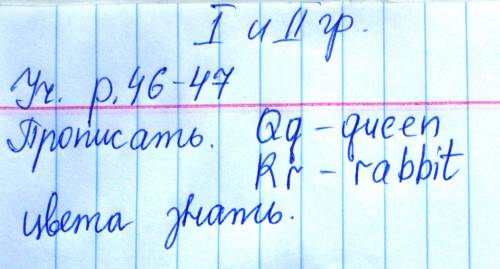 I и II гр.
Уч. р. 46-47
Прописать. Qq - queen
Rr - rabbit
цвета знать.